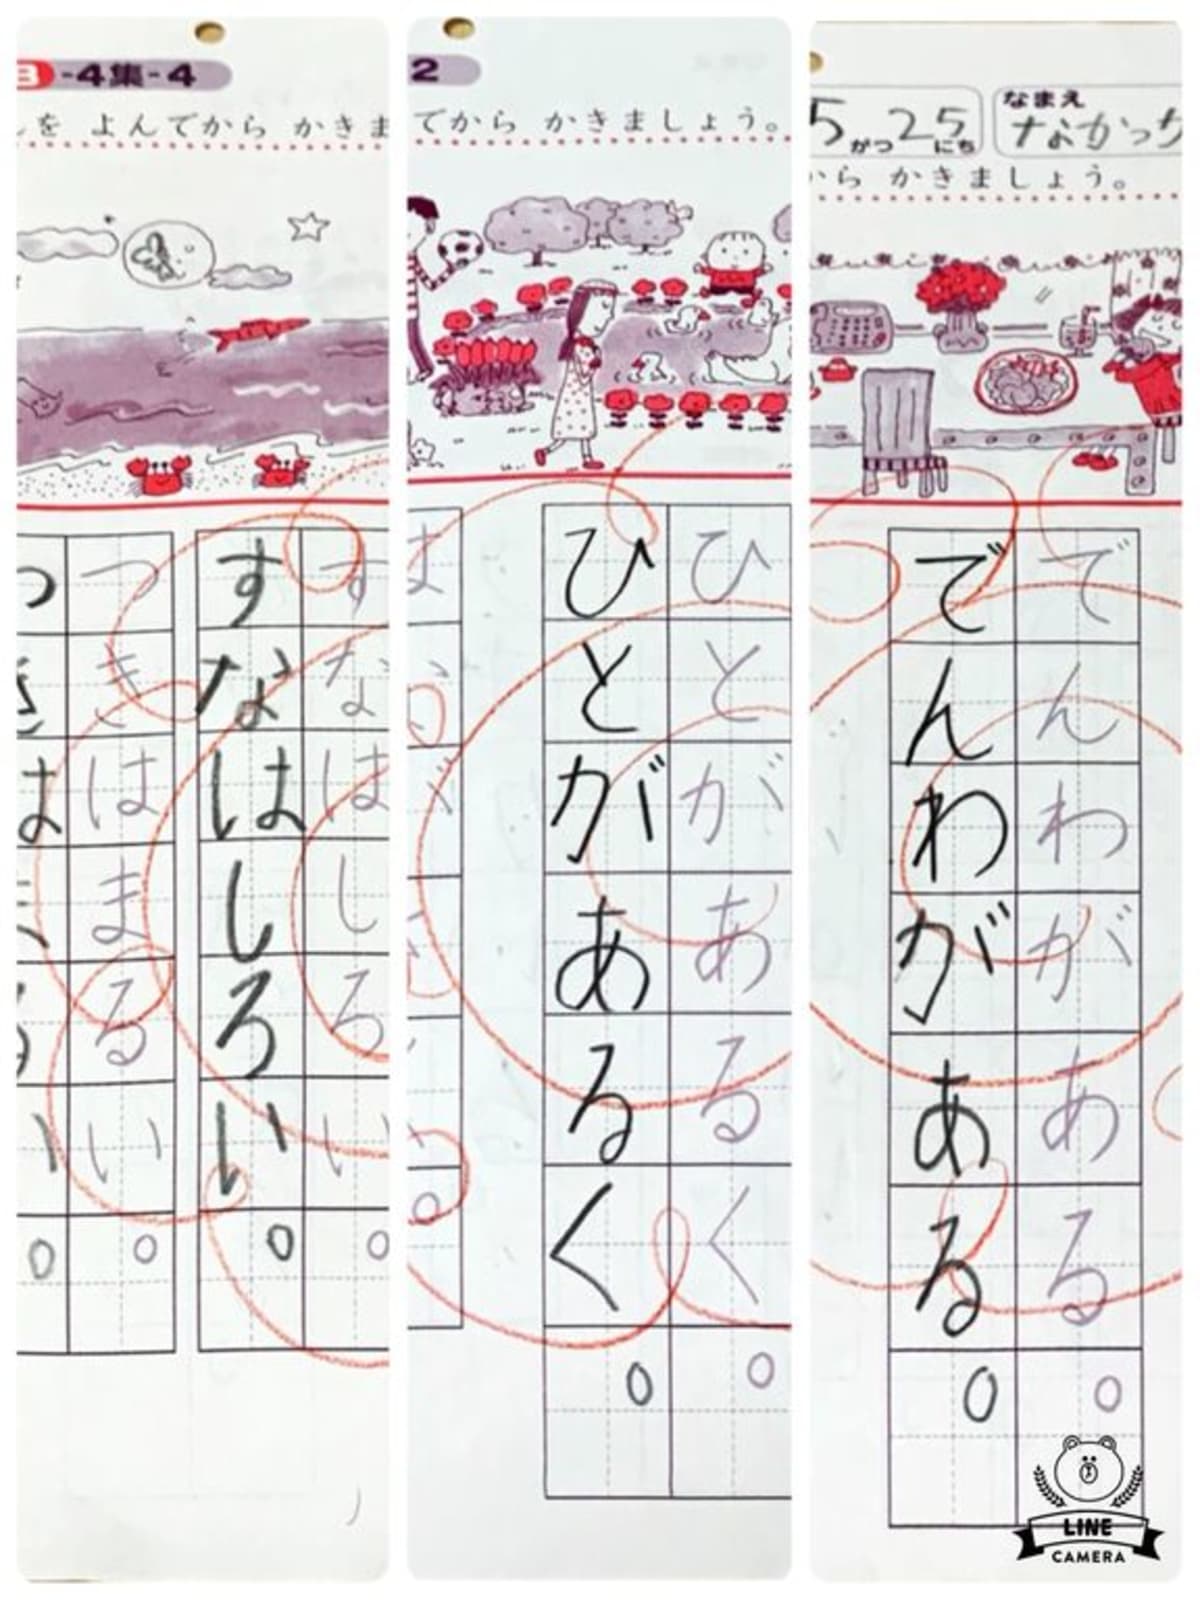 B-4集-4
を よんでから かきま
すなはしろい。
すなはしろい。
つきはまるい。
2
でから かきましょう。
ひとがあるく。
ひとがあるく。
5がつ25にち
なまえ
なかっち
から かきましょう。
でんわがある。
でんわがある。
LINE
CAMERA